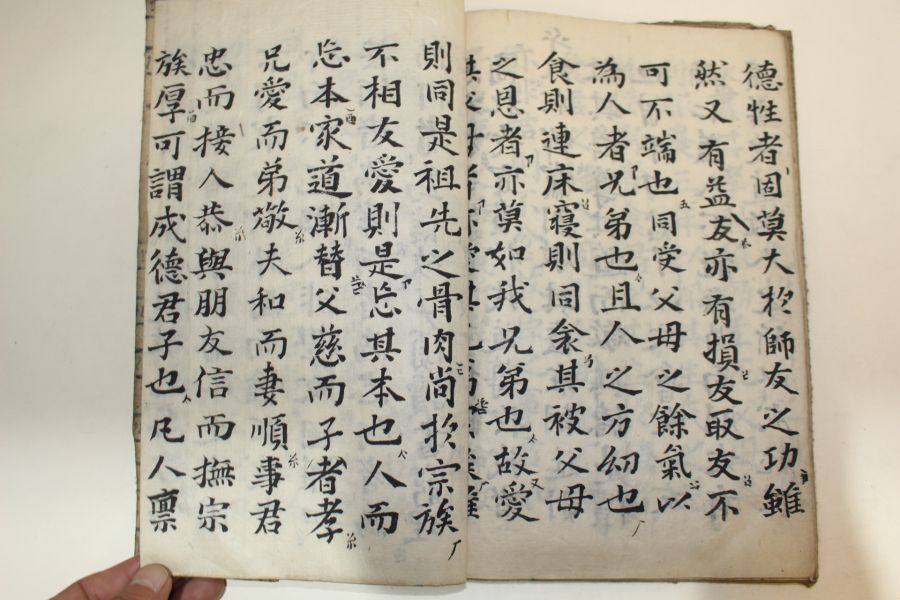 德性者固莫大扵師友之功雖
然又有益友亦有損友取友不
可不端也同受父母之餘氣以
為人者兄弟也且人之方幼也
食則連床寢則同衾其被父母
之恩者亦莫如我兄弟也故愛
其父母者亦愛其
則同是祖先之骨肉尚扵宗族
不相友愛則是忘其本也人而
忘本家道漸替父慈而子者孝
兄愛而弟敬夫和而妻順事君
忠而接人恭與朋友信而撫宗
族厚可謂成德君子也凡人禀